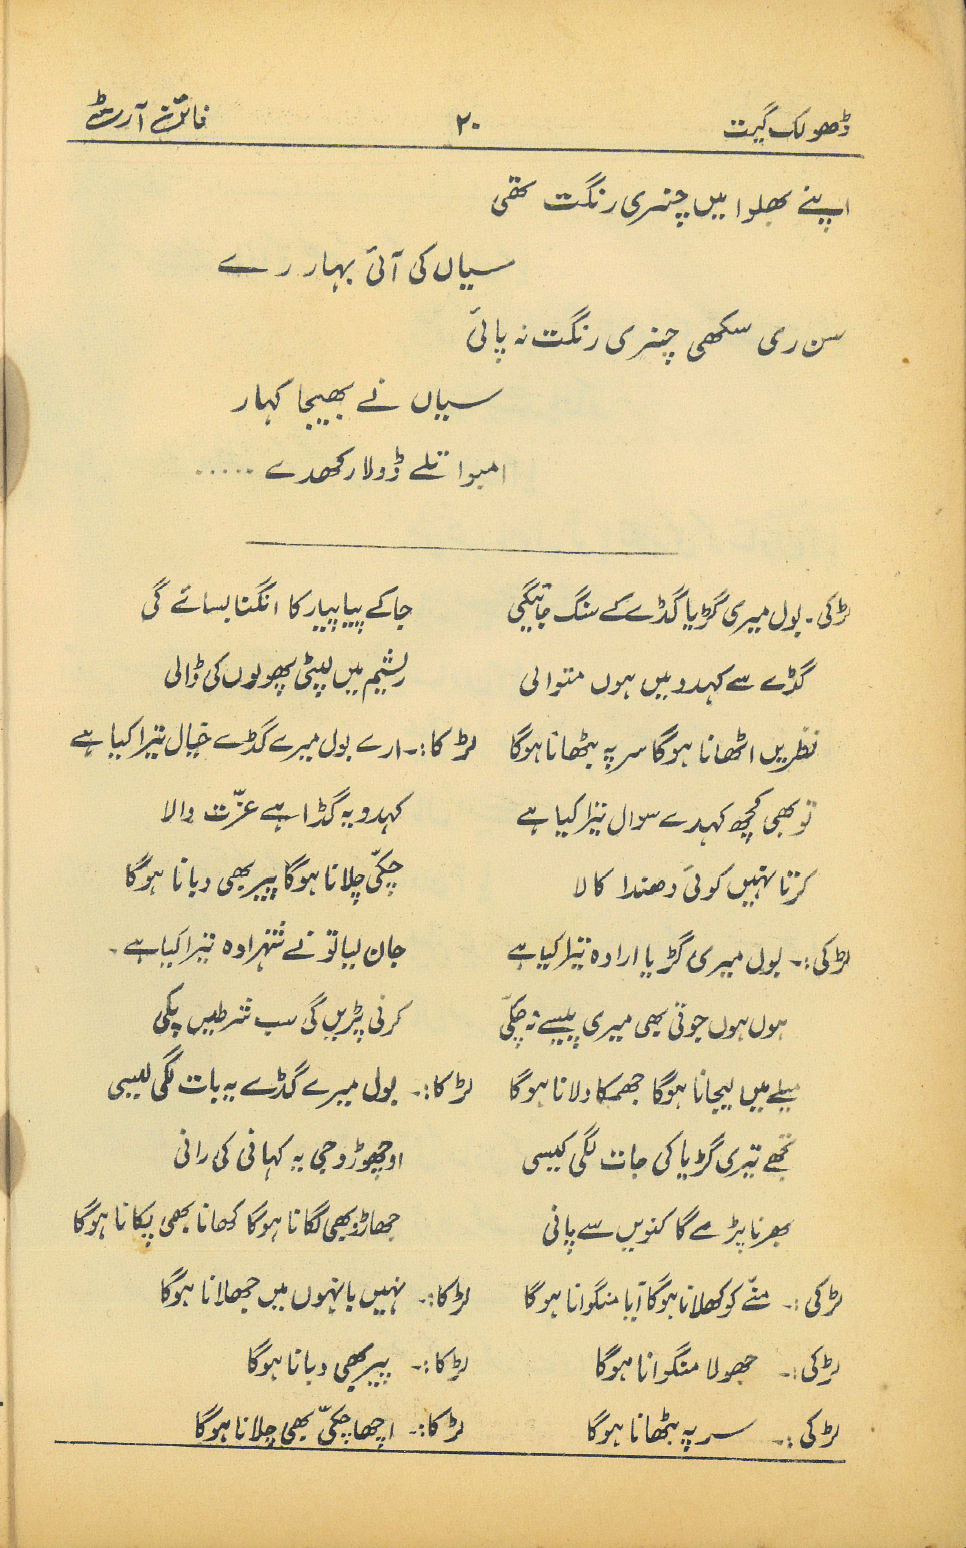 ڈھولک گیت ۲۰ فائن آرٹ
اپنے بھلوا میں چنری رنگت تھی
سیاں کی آئی بہار رے
سن ری سکھی چنری رنگت نہ پائی
سیاں نے بھیجا کہار
امبوا تلے ڈولا رکھدے .....
لڑکی۔ بول میری گڑیا گڈے کے سنگ جائیگی جاکے پیا پیار کا انگنا بسائے گی
گڈے سے کہدو میں ہوں متوالی ریشم میں لپٹی پھولوں کی ڈالی
نظریں اٹھانا ہوگا سر پہ بٹھانا ہوگا لڑکا:۔ ارے بول میرے گڈے خیال تیرا کیا ہے
تو بھی کچھ کہدے سوال تیرا کیا ہے کہدو یہ گڈا ہے عزّت والا
کرتا نہیں کوئی دھندا کالا چکّی چلانا ہوگا پیر بھی دبانا ہوگا
لڑکی:۔ بول میری گڑیا ارادہ تیرا کیا ہے جان لیا تو نے شہزادہ تیرا کیا ہے۔
ہوں ہوں جوتی بھی میری پیسے نہ چکّی کرنی پڑیں گی سب شرطیں پکی
میلے میں لیجانا ہوگا جھمکا دلانا ہوگا لڑکا:۔ بول میرے گڈے یہ بات لگی کیسی
تجھے تیری گڑیا کی جات لگی کیسی اوچھوڑوجی یہ کہانی کی رانی
بھرنا پڑے گا کنویں سے پانی جھاڑو بھی لگانا ہوگا کھانا بھی پکانا ہوگا
لڑکی:۔ منّے کو کھلانا ہوگا آیا منگوانا ہوگا لڑکا:۔ نہیں بانہوں میں جھلانا ہوگا
لڑکی:۔ جھولا منگوانا ہوگا لڑکا:۔ پیر بھی دبانا ہوگا
لڑکی:۔ سر پہ بٹھانا ہوگا لڑکا:۔ اچھا چکّی بھی چلانا ہوگا